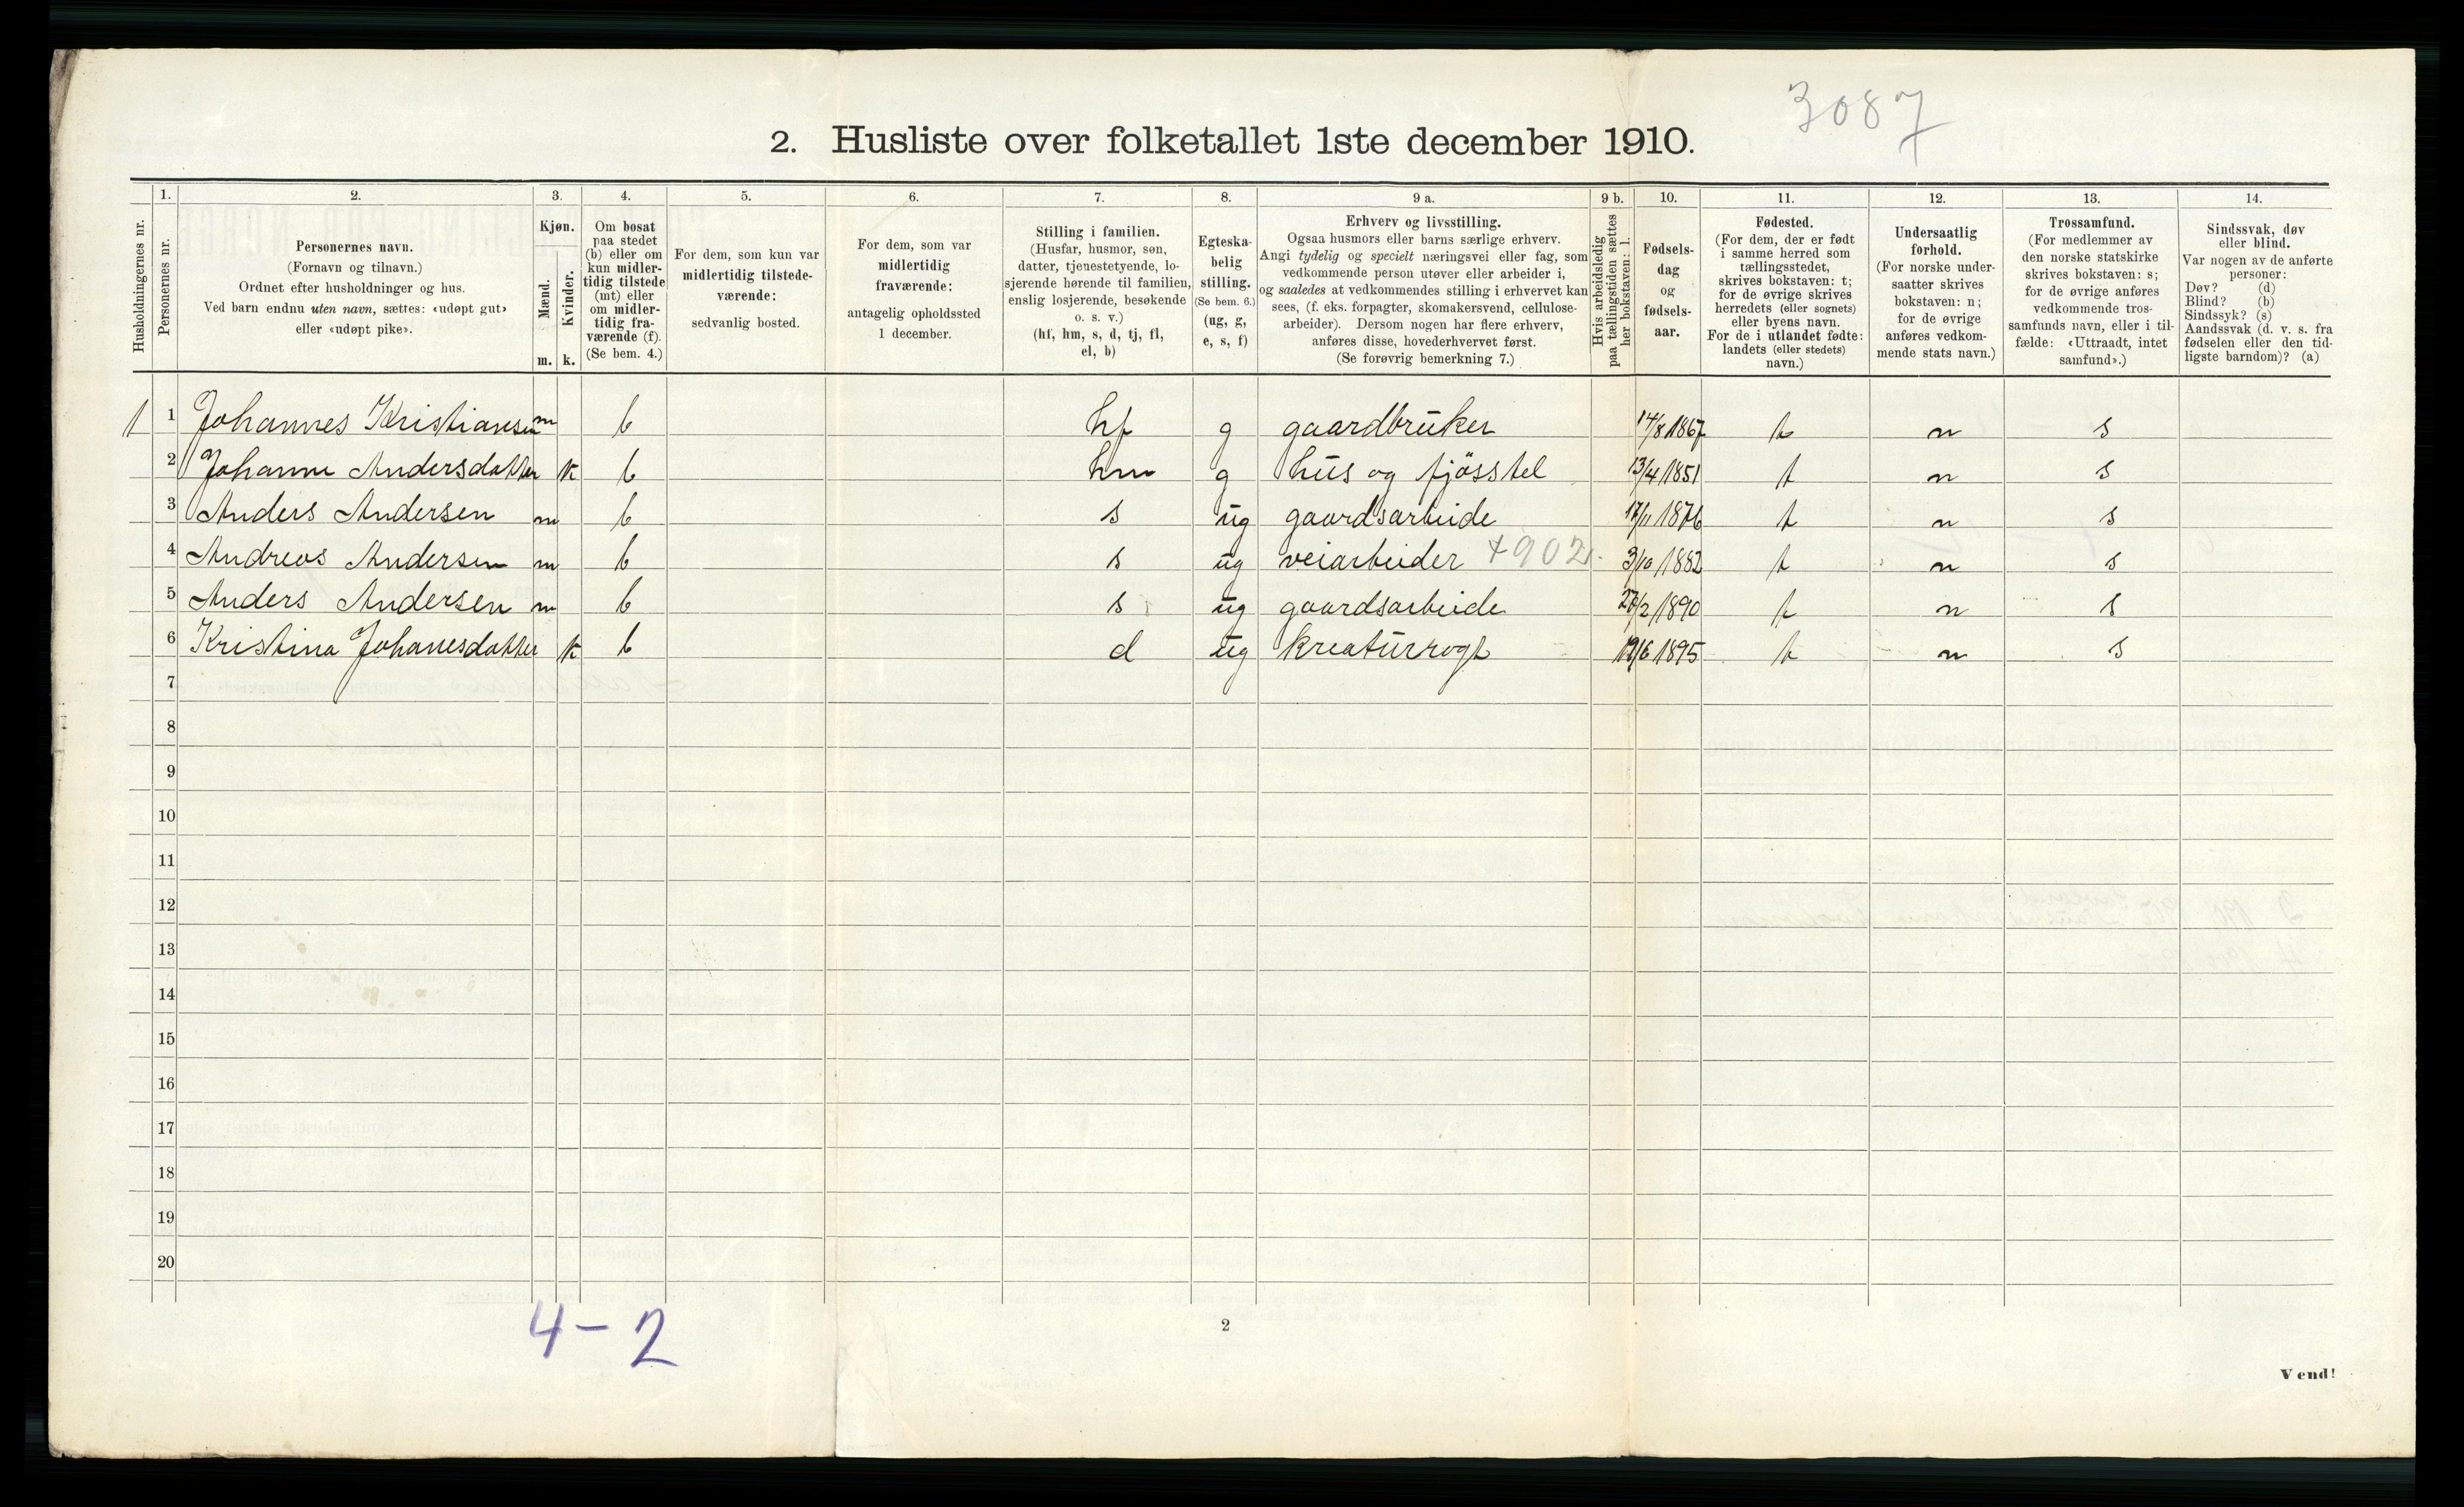 3087
2. Husliste over folketallet 1ste december 1910.
Husholdningernes nr.
1.
Personernes nr.
2.
Personernes navn.
(Fornavn og tilnavn.)
Ordnet efter husholdninger og hus.
Ved barn endnu uten navn, sættes: «udøpt gut»
eller «udøpt pike».
3.
Kjøn.
Mænd.
Kvinder.
m. k.
4.
Om bosat
paa stedet
(b) eller om
kun midler-
tidig tilstede
(mt) eller
om midler-
tidig fra-
værende (f).
(Se bem. 4.)
5.
For dem, som kun var
midlertidig tilstede-
værende:
sedvanlig bosted.
6.
For dem, som var
midlertidig
fraværende:
antagelig opholdssted
1 december.
7.
Stilling i familien.
(Husfar, husmor, søn,
datter, tjenestetyende, lo-
sjerende hørende til familien,
enslig losjerende, besøkende
o. s. v.)
(hf, hm, s, d, tj, fl,
el, b)
8.
Egteska-
belig
stilling.
(Se bem. 6.)
(ug, g,
e, s, f)
9 a.
Erhverv og livsstilling.
Ogsaa husmors eller barns særlige erhverv.
Angi tydelig og specielt næringsvei eller fag, som
vedkommende person utøver eller arbeider i,
og saaledes at vedkommendes stilling i erhvervet kan
sees, (f. eks. forpagter, skomakersvend, cellulose-
arbeider). Dersom nogen har flere erhverv,
anføres disse, hovederhvervet først.
(Se forøvrig bemerkning 7.)
9 b.
Hvis arbeidsledig
paa tællingstiden sættes
her bokstaven: l.
10.
Fødsels-
dag
og
fødsels-
aar.
11.
Fødested.
(For dem, der er født
i samme herred som
tællingsstedet,
skrives bokstaven: t;
for de øvrige skrives
herredets (eller sognets)
eller byens navn.
For de i utlandet fødte:
landets (eller stedets)
navn.)
12.
Undersaatlig
forhold.
(For norske under-
saatter skrives
bokstaven: n;
for de øvrige
anføres vedkom-
mende stats navn.)
13.
Trossamfund.
(For medlemmer av
den norske statskirke
skrives bokstaven: s;
for de øvrige anføres
vedkommende tros-
samfunds navn, eller i til-
fælde: «Uttraadt, intet
samfund».)
14.
Sindssvak, døv
eller blind.
Var nogen av de anførte
personer:
Døv? (d)
Blind? (b)
Sindssyk? (s)
Aandssvak (d. v. s. fra
fødselen eller den tid-
ligste barndom)? (a)
1 1 Johannes Kristiansen m b hf g gaardbruker 14/8 1867 t n s
2 Johanne Andersdatter k b hm g hus og fjösstel 13/4 1851 t n s
3 Anders Andersen m b s ug gaardsarbeide 17/11 1876 t n s
4 Andreas Andersen m b s ug veiarbeider +902. 3/10 1882 t n s
5 Anders Andersen m b s ug gaardsarbeide 27/2 1890 t n s
6 Kristina Johanesdatter k b d ug kreaturrogt 19/6 1895 t n s
7
8
9
10
11
12
13
14
15
16
17
18
19
20
4-2
2
Vend!